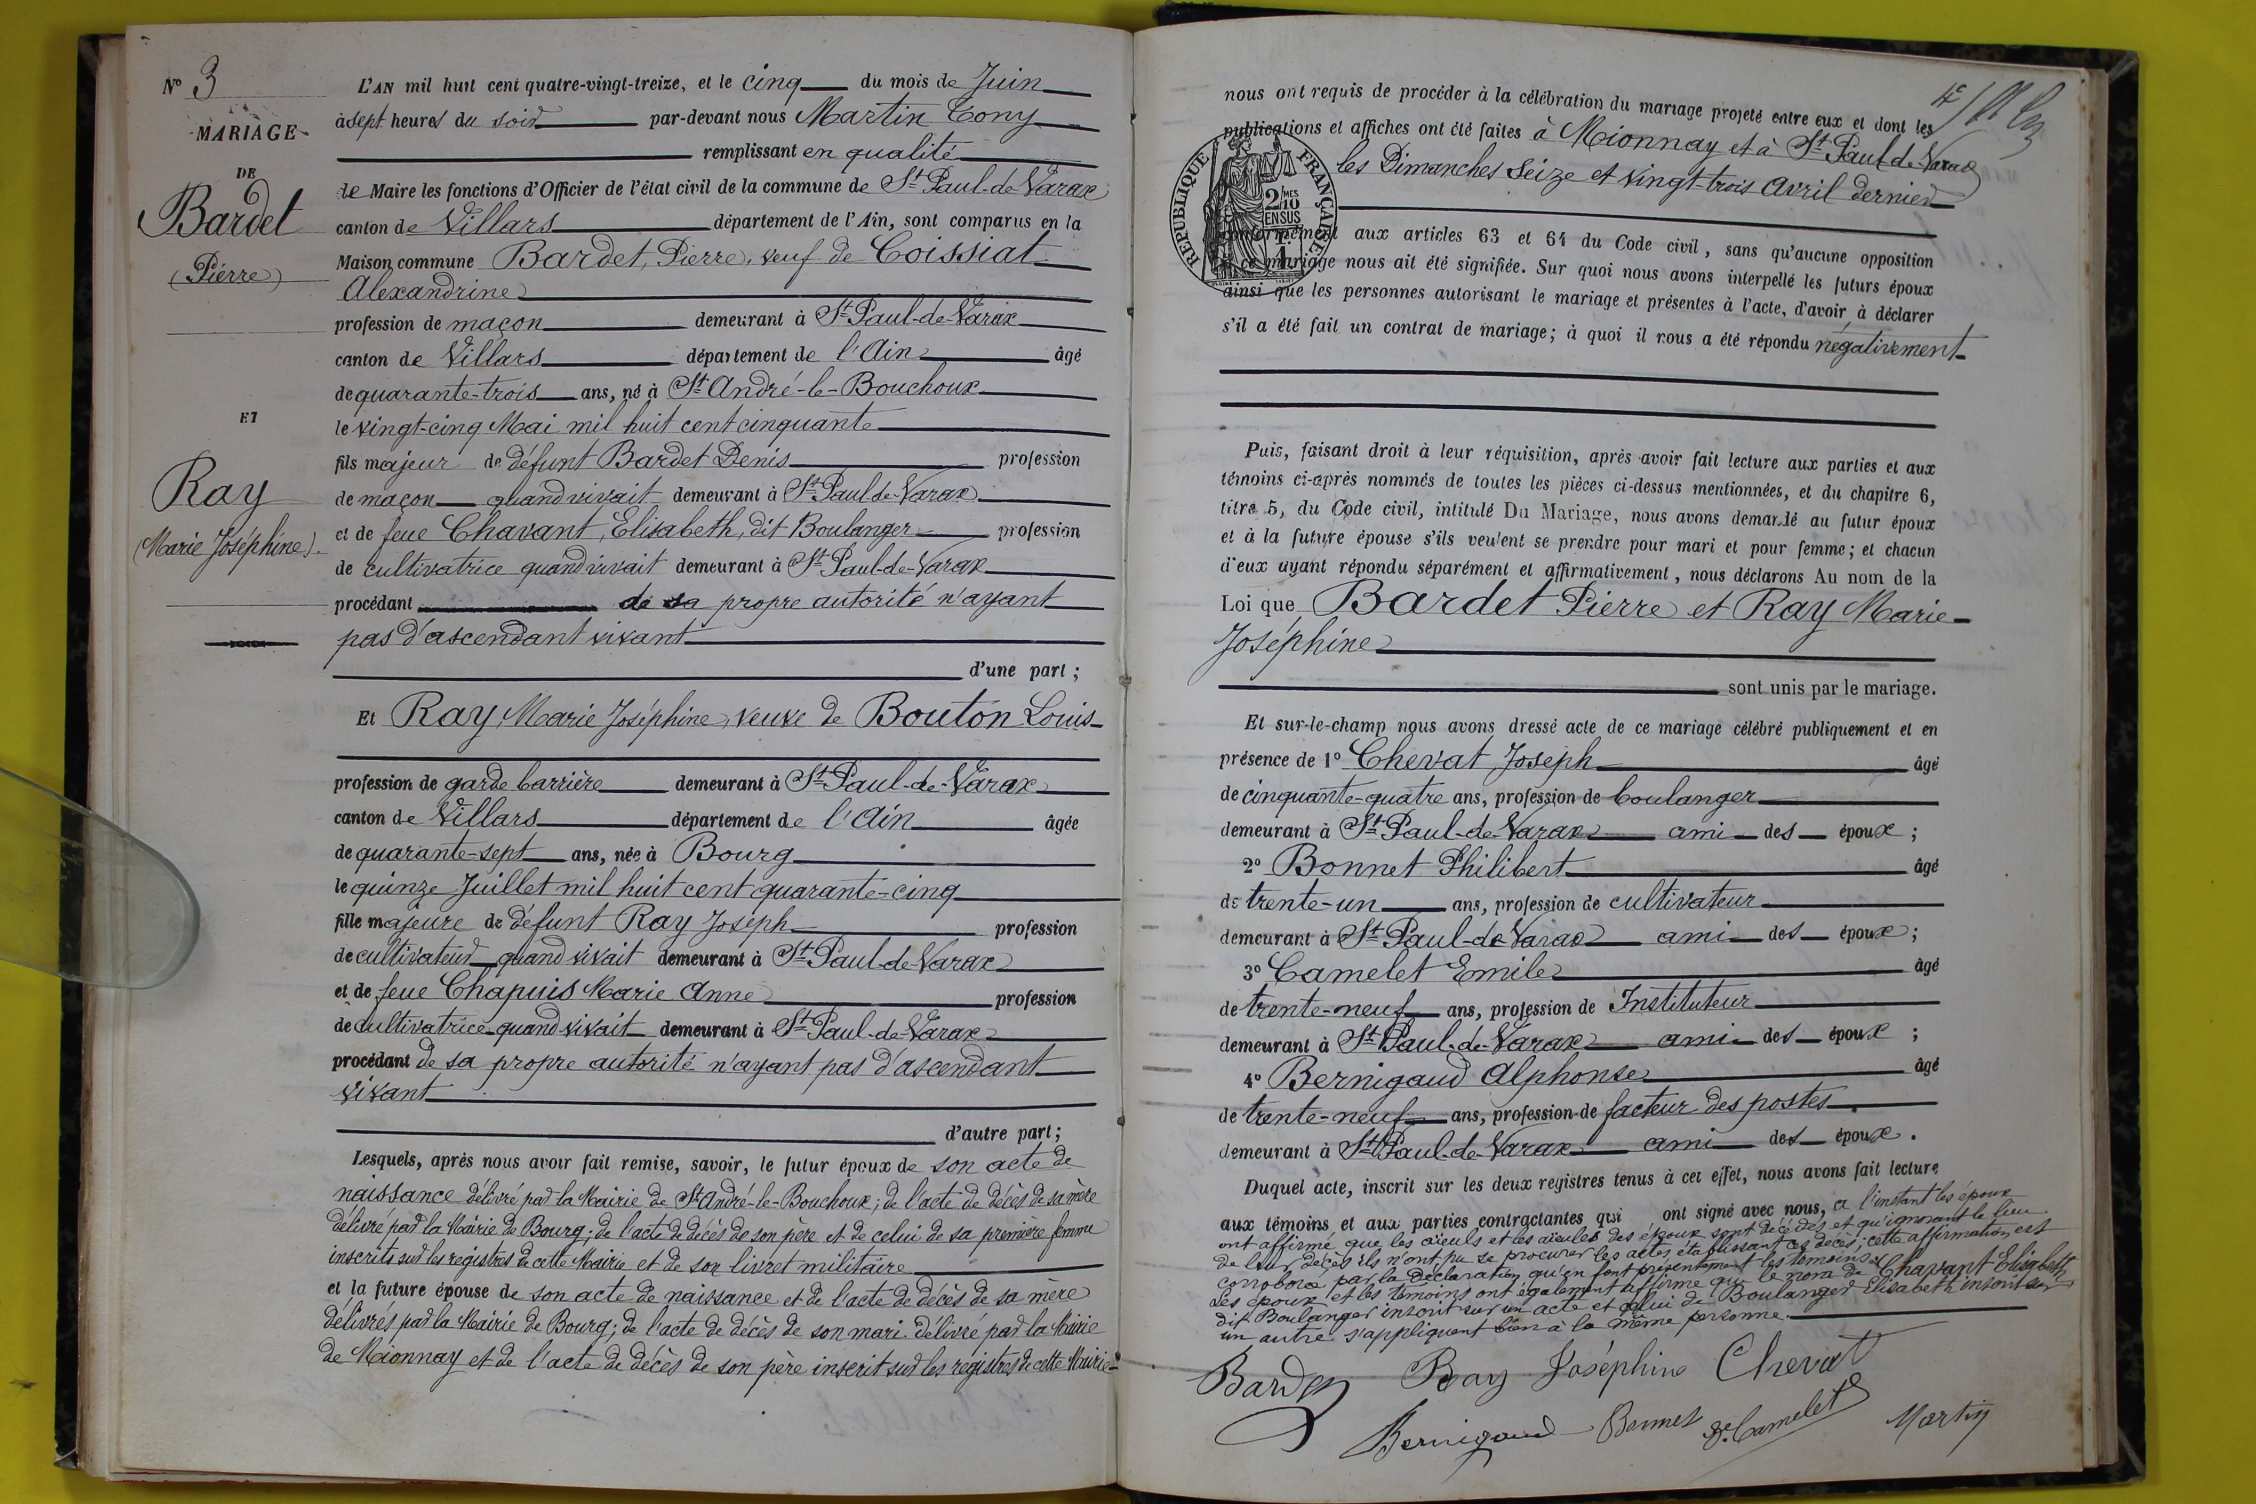 N° 3
MARIAGE
DE
Bardet
(Pierre)
ET
Ray
(Marie Joséphine).
L'AN mil huit cent quatre-vingt-treize, et le cinq du mois de Juin
à sept heures du soir par-devant nous Martin Tony
remplissant en qualité
de Maire les fonctions d'Officier de l'état civil de la commune de St Paul-de-Varax
canton de Villars département de l'Ain, sont comparus en la
Maison commune Bardet, Pierre, veuf de Coissiat
Alexandrine
profession de maçon demeurant à St Paul-de-Varax
canton de Villars département de l'Ain âgé
de quarante-trois ans, né à St André-le-Bouchoux
le vingt-cinq Mai mil huit cent cinquante
fils majeur de défunt Bardet Denis profession
de maçon quand vivait demeurant à St Paul-de-Varax
et de feue Chavant, Elisabeth, dit Boulanger profession
de cultivatrice quand vivait demeurant à St Paul-de-Varax
procédant de sa propre autorité n'ayant
pas d'ascendant vivant
d'une part ;
Et Ray, Marie Joséphine, veuve de Bouton Louis
profession de garde barrière demeurant à St Paul-de-Varax
canton de Villars département de l'Ain âgée
de quarante-sept ans, née à Bourg
le quinze Juillet mil huit cent quarante-cinq
fille majeure de défunt Ray Joseph profession
de cultivateur quand vivait demeurant à St Paul-de-Varax
et de feue Chapuis Marie Anne profession
de cultivatrice quand vivait demeurant à St Paul-de-Varax
procédant de sa propre autorité n'ayant pas d'ascendant
vivant
d'autre part ;
Lesquels, après nous avoir fait remise, savoir, le futur époux de son acte de
naissance délivré par la Mairie de St André-le-Bouchoux ; de l'acte de décès de sa mère
délivré par la Mairie de Bourg ; de l'acte de décès de son père et de celui de sa première femme
inscrits sur les registres de cette Mairie et de son livret militaire
et la future épouse de son acte de naissance et de l'acte de décès de sa mère
délivrés par la Mairie de Bourg ; de l'acte de décès de son mari délivré par la Mairie
de Mionnay et de l'acte de décès de son père inscrit sur les registres de cette Mairie
nous ont requis de procéder à la célébration du mariage projeté entre eux et dont les
publications et affiches ont été faites à Mionnay et à St Paul-de-Varax
les Dimanches seize et vingt-trois Avril dernier
RÉPUBLIQUE FRANÇAISE
2/10
EN SUS
conformément aux articles 63 et 64 du Code civil, sans qu'aucune opposition
à ce mariage nous ait été signifiée. Sur quoi nous avons interpellé les futurs époux
ainsi que les personnes autorisant le mariage et présentes à l'acte, d'avoir à déclarer
s'il a été fait un contrat de mariage ; à quoi il nous a été répondu négativement
Puis, faisant droit à leur réquisition, après avoir fait lecture aux parties et aux
témoins ci-après nommés de toutes les pièces ci-dessus mentionnées, et du chapitre 6,
titre 5, du Code civil, intitulé Du Mariage, nous avons demandé au futur époux
et à la future épouse s'ils veulent se prendre pour mari et pour femme ; et chacun
d'eux ayant répondu séparément et affirmativement, nous déclarons Au nom de la
Loi que Bardet Pierre et Ray Marie
Joséphine
sont unis par le mariage.
Et sur-le-champ nous avons dressé acte de ce mariage célébré publiquement et en
présence de 1° Chevat, Joseph âgé
de cinquante-quatre ans, profession de boulanger
demeurant à St Paul-de-Varax ami des époux ;
2° Bonnet Philibert âgé
de trente-un ans, profession de cultivateur
demeurant à St Paul-de-Varax ami des époux ;
3° Camelet Emile âgé
de trente-neuf ans, profession de Instituteur
demeurant à St Paul-de-Varax ami des époux ;
4° Bernigaud Alphonse âgé
de trente-neuf ans, profession de facteur des postes
demeurant à St Paul-de-Varax ami des époux.
Duquel acte, inscrit sur les deux registres tenus à cet effet, nous avons fait lecture
aux témoins et aux parties contractantes qui ont signé avec nous, à l'instant les époux
ont affirmé que les aïeuls et les aïeules des époux sont décédés et qu'ignorant le lieu
de leur décès ils n'ont pu se procurer les actes établissant ces décès ; cette affirmation est
corroborée par la déclaration qu'en font présentement les témoins
Les époux et les témoins ont également affirmé que le nom de Chavant Elisabeth
dit Boulanger inscrit sur un acte et celui de Boulanger Elisabeth inscrit sur
un autre s'appliquent bien à la même personne.
Bardet Ray Joséphine Chevat
Bernigaud Bonnet E. Camelet Martin